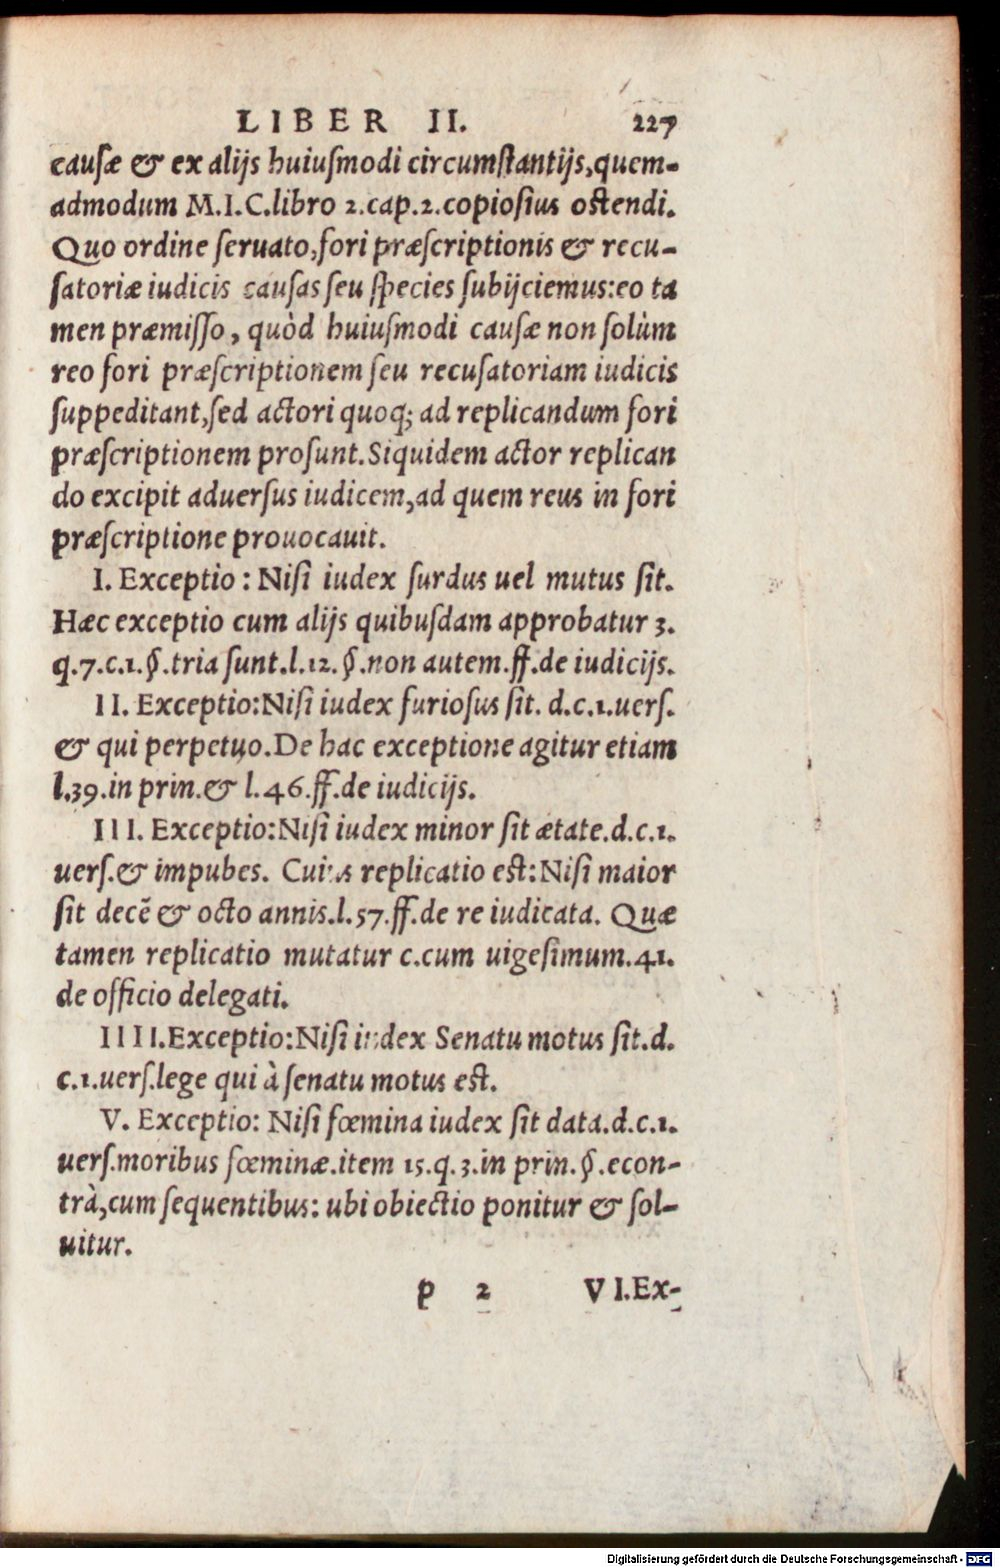 LIBER II. 227
cauſæ & ex alijs huiuſmodi circumſtantijs,quem-
admodum M.I.C.libro 2.cap.2.copioſius oſtendi.
Quo ordine ſeruato,fori præſcriptionis & recu-
ſatoriæ iudicis cauſas ſeu ſpecies ſubijciemus:eo ta
men præmiſſo, quòd huiuſmodi cauſæ non ſolùm
reo fori præſcriptionem ſeu recuſatoriam iudicis
ſuppeditant,ſed actori quoq; ad replicandum fori
præſcriptionem proſunt.Siquidem actor replican
do excipit aduerſus iudicem,ad quem reus in fori
præſcriptione prouocauit.
I. Exceptio: Niſi iudex ſurdus uel mutus ſit.
Hæc exceptio cum alijs quibuſdam approbatur 3.
q.7.c.1.§.tria ſunt.l.12.§.non autem.ff.de iudicijs.
II. Exceptio:Niſi iudex furioſus ſit. d.c.1.uerſ.
& qui perpetuo.De hac exceptione agitur etiam
l.39.in prin.& l.46.ff.de iudicijs.
III. Exceptio:Niſi iudex minor ſit ætate.d.c.1.
uerſ.& impubes. Cuius replicatio eſt:Niſi maior
ſit decē & octo annis.l.57.ff.de re iudicata. Quæ
tamen replicatio mutatur c.cum uigeſimum.41.
de officio delegati.
IIII.Exceptio:Niſi iudex Senatu motus ſit.d.
c.1.uerſ.lege qui à ſenatu motus eſt.
V. Exceptio: Niſi fœmina iudex ſit data.d.c.1.
uerſ.moribus fœminæ.item 15.q.3.in prin.§.econ-
trà,cum ſequentibus: ubi obiectio ponitur & ſol-
uitur.
p 2 VI.Ex-
Digitalisierung gefördert durch die Deutsche Forschungsgemeinschaft - DFG